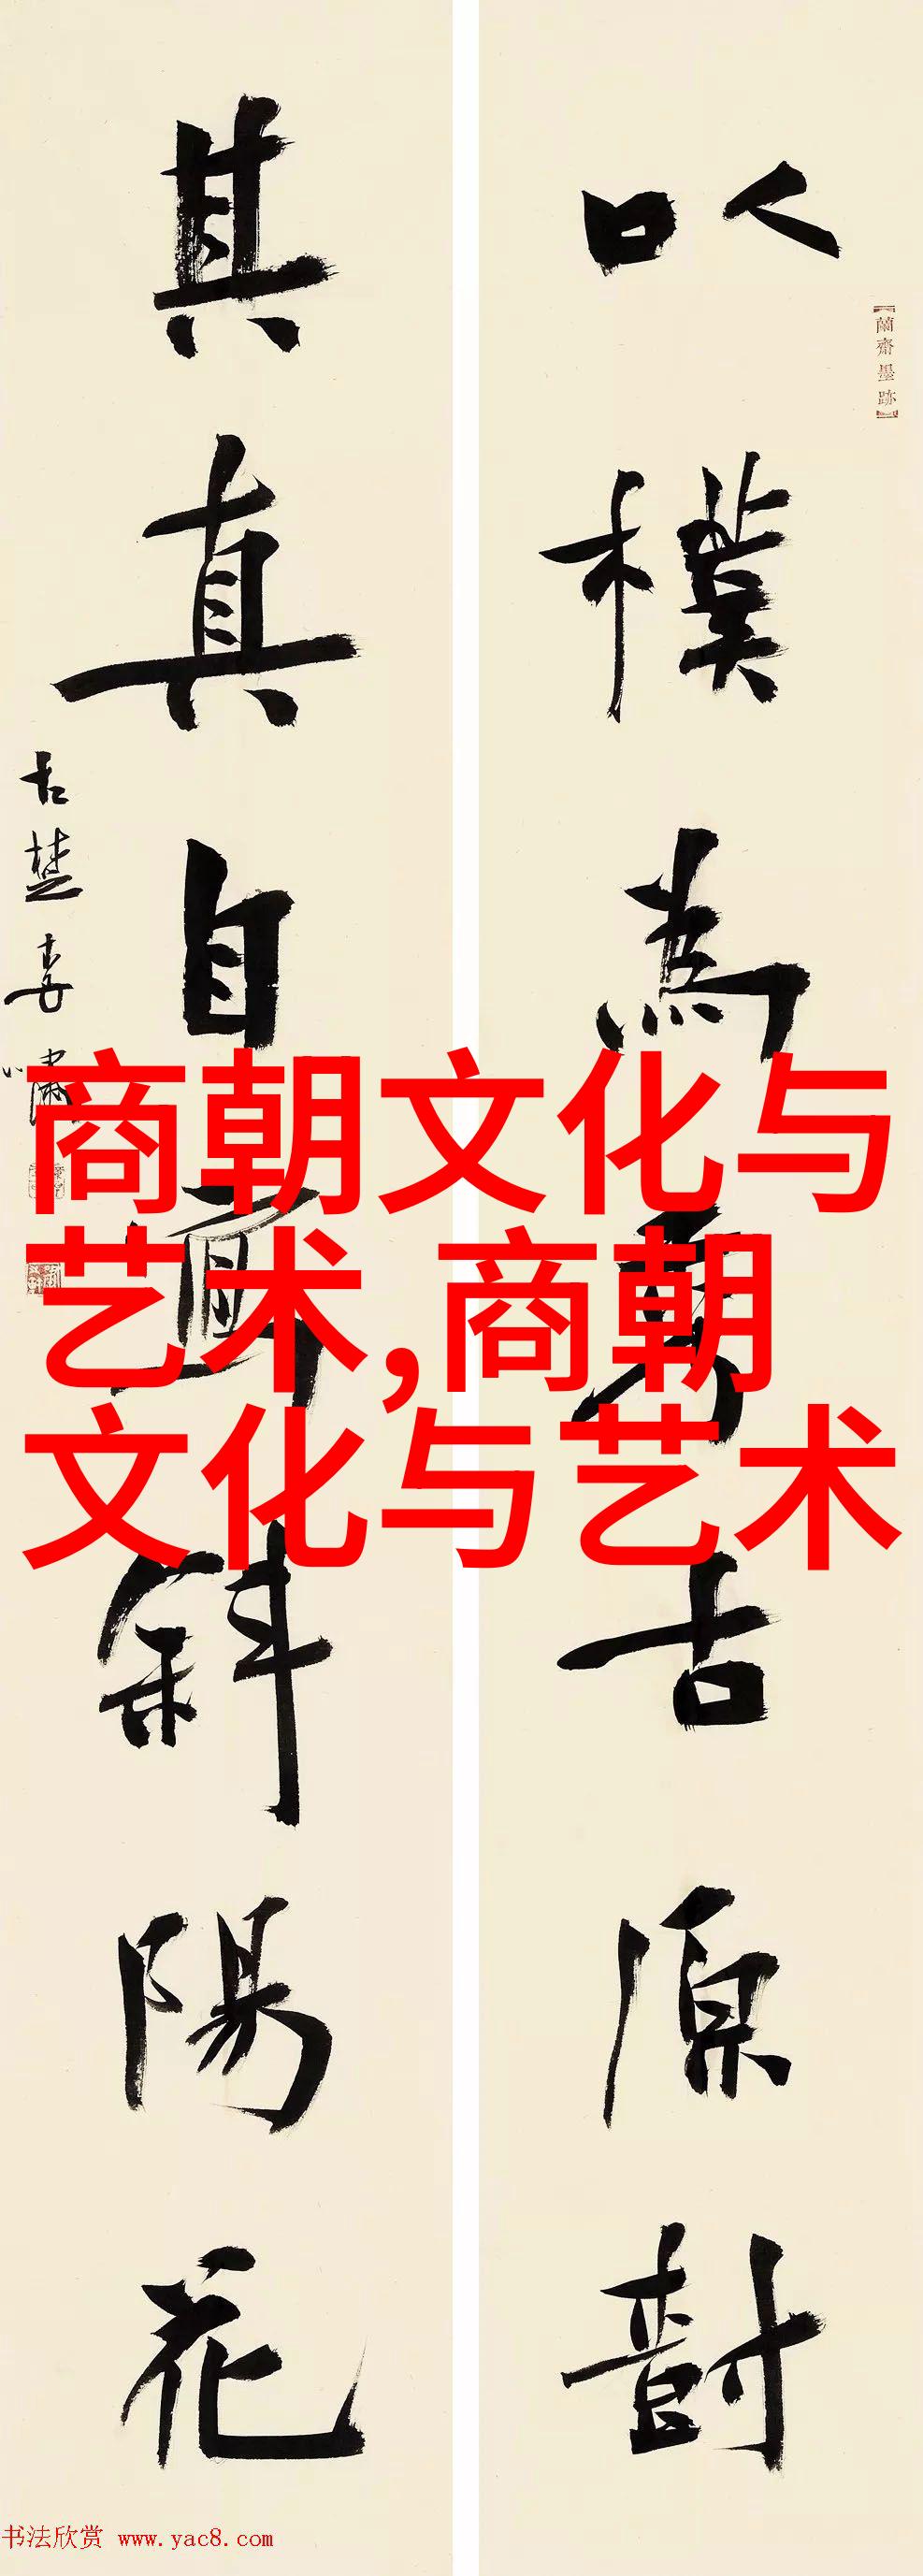 以樸為秀古原樹
【蘭齋墨跡】
其真自寫斜陽花
古楚李嘯
商朝文化与
艺术,商朝
文化与艺术
书法欣赏 www.yac8.com